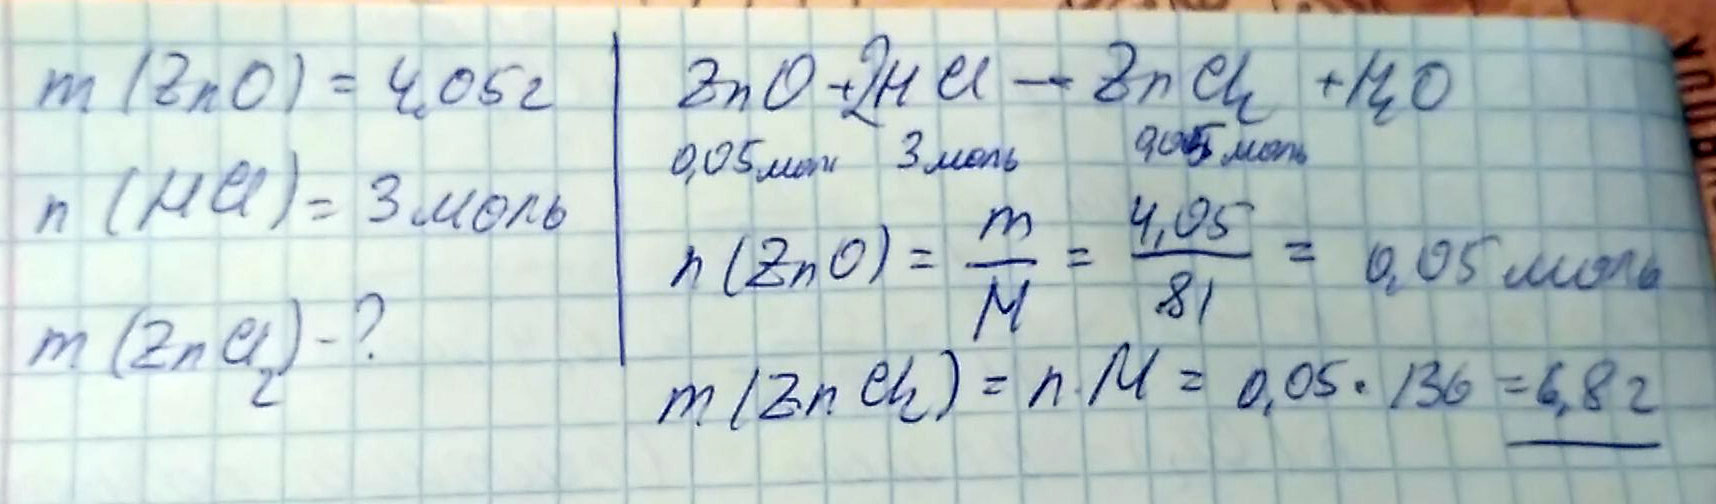 m (ZnO) = 4,05г
n (HCl) = 3 моль
m (ZnCl₂) - ?
ZnO + 2HCl → ZnCl₂ + H₂O
0,05 моль 3 моль 0,05 моль
n (ZnO) = m/M = 4,05/81 = 0,05 моль
m (ZnCl₂) = n · M = 0,05 · 136 = 6,8 г